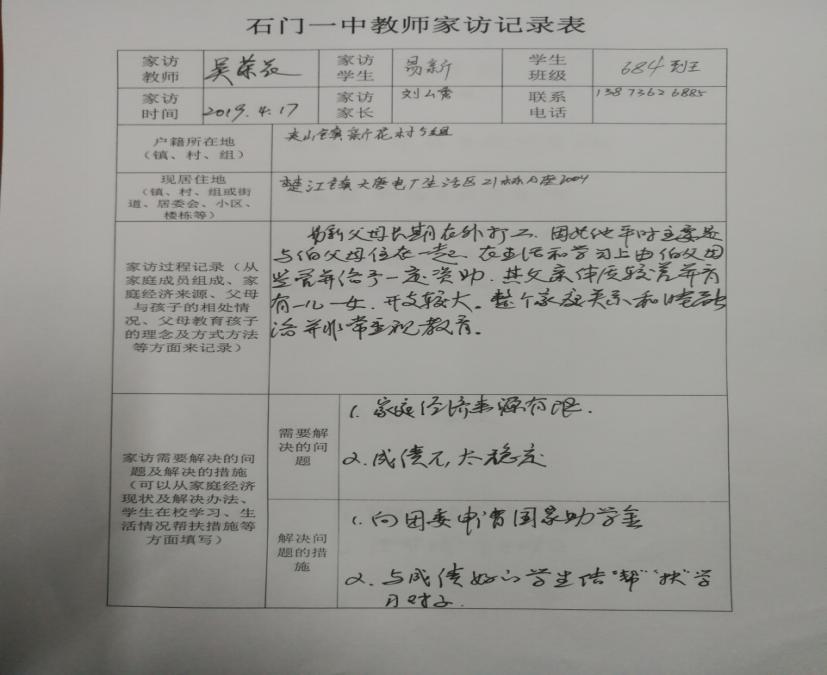 石门一中教师家访记录表
家访
教师
吴荣花
家访
学生
易新
学生
班级
684班
家访
时间
2019.4.17
家访
家长
刘
联系
电话
138 7362 6885
户籍所在地
（镇、村、组）
夹山镇新花村5组
现居住地
（镇、村、组或街
道、居委会、小区、
楼栋等）
楚江镇大唐电厂生活区21栋
家访过程记录（从
家庭成员组成、家
庭经济来源、父母
与孩子的相处情
况、父母教育孩子
的理念及方式方法
等方面来记录）
易新父母长期在外打工，因此他平时主要是
与伯父母住在一起，在生活和学习上由伯父母
监管并给予一定资助，其父亲体质较差并育
有一儿一女，开支较大。整个家庭关系和睦融
洽并非常重视教育。
家访需要解决的问
题及解决的措施
（可以从家庭经济
现状及解决办法、
学生在校学习、生
活情况帮扶措施等
方面填写）
需要解
决的问
题
1. 家庭经济来源有限.
2. 成绩不太稳定
解决问
题的措
施
1. 向团委申请国家助学金
2. 与成绩好的学生结"帮""扶"学
习对子.